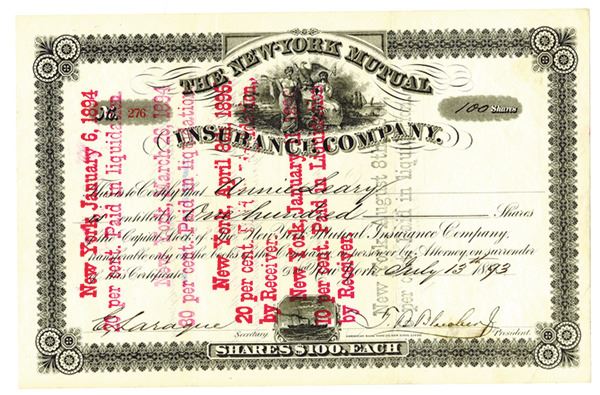 THE NEW-YORK MUTUAL
No. 276
100 Shares
INSURANCE COMPANY.
This is to Certify that Annie Leary
is entitled to One hundred Shares
in the Capital Stock of The New York Mutual Insurance Company,
transferable only on the Books of the Company in person or by Attorney on surrender
of this Certificate. New York July 13th 1893
Secretary
President.
SHARES $100. EACH
New York, January 6, 1894
20 per cent. Paid in liquidation.
March 1894
per cent. Paid in liquidation
New York, April 1895
20 per cent.
by Receiver.
New York, January
10 per cent. Paid in Liquidation,
by Receiver
New York August
per cent. paid in liquidation